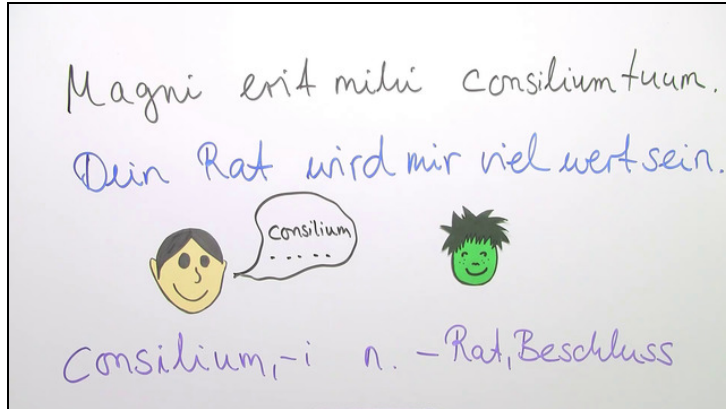 Magni erit mihi consilium tuum.
Dein Rat wird mir viel wert sein.
consilium
.....
Consilium, -i n. - Rat, Beschluss